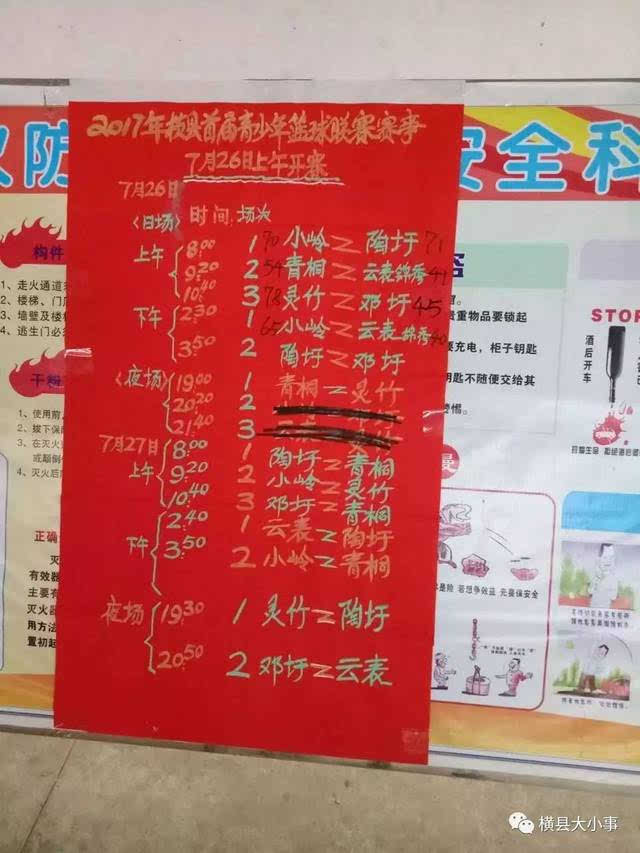 2017年校县首届青少年篮球联赛赛事
7月26日上午开赛
7月26日
〈日场〉 时间 场次
上午 8:00 1 70 小岭 陶圩 71
9:20 2 54 青桐 云表锦秀 41
10:40 3 78 灵竹 邓圩 45
下午 2:30 1 65 小岭 云表锦秀 40
3:50 2 陶圩 邓圩
〈夜场〉 19:00 1 青桐 灵竹
20:20 2
21:40 3
7月27日
上午 8:00 1 陶圩 青桐
9:20 2 小岭 灵竹
10:40 3 邓圩 青桐
下午 2:40 1 云表 陶圩
3:50 2 小岭 青桐
夜场 19:30 1 灵竹 陶圩
20:50 2 邓圩 云表
火防
安全科
构件
1、走火通道
2、楼梯、门
3、墙壁及楼
4、逃生门必
干粉
1、使用前
2、拔下保
3、在灭火
或颠倒
4、灭火后
正确
灭
有效器
主要有
灭火器
用方法
置初起
贵重物品要锁起
充电，柜子钥匙
匙不随便交给其
STOP
酒后开车
若想争效益 先要保安全
横县大小事